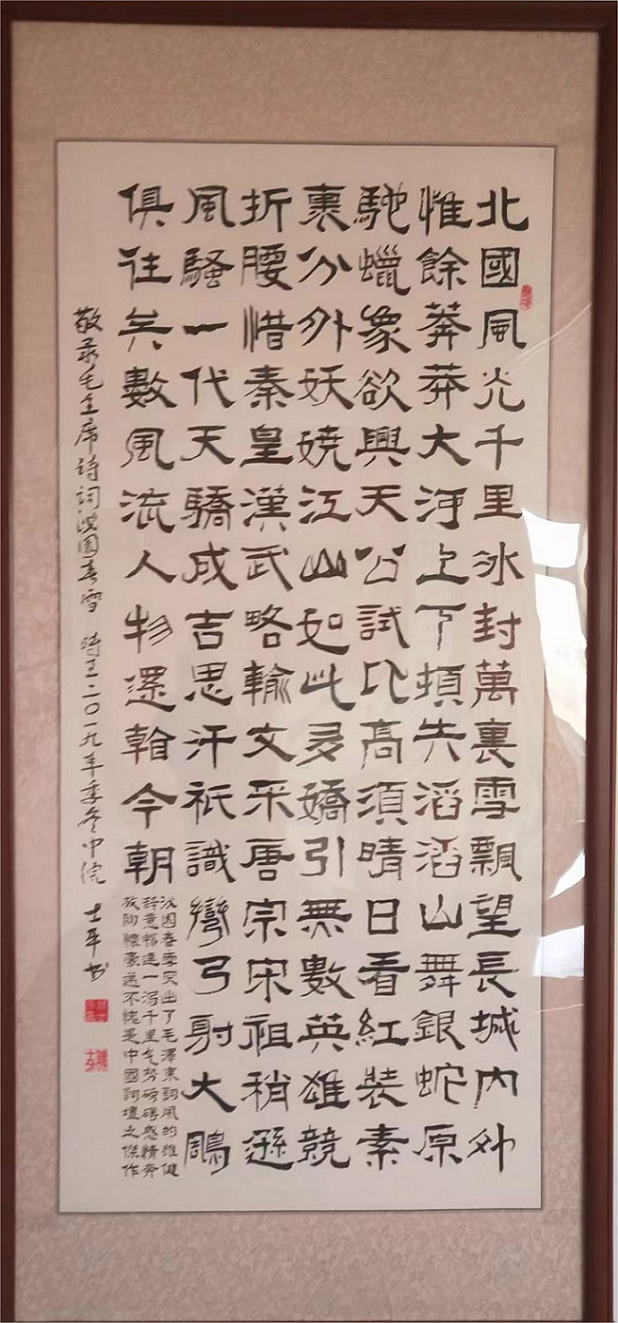 北國風光千里冰封萬裏雪飄望長城内外
惟餘莽莽大河上下頓失滔滔山舞銀蛇原
馳蠟象欲與天公試比高須晴日看紅裝素
裹分外妖嬈江山如此多嬌引無數英雄競
折腰惜秦皇漢武略輸文采唐宗宋祖稍遜
風騷一代天驕成吉思汗祇識彎弓射大鵰
俱往矣數風流人物還看今朝
沁園春雪突出了毛澤東詞風的雄健
辭意暢達一泻千里气势磅礴感情奔
放胸懷豪邁不愧是中國詞壇之傑作
敬录毛主席诗词沁園春雪 時在二〇一九年季冬中浣 士平书